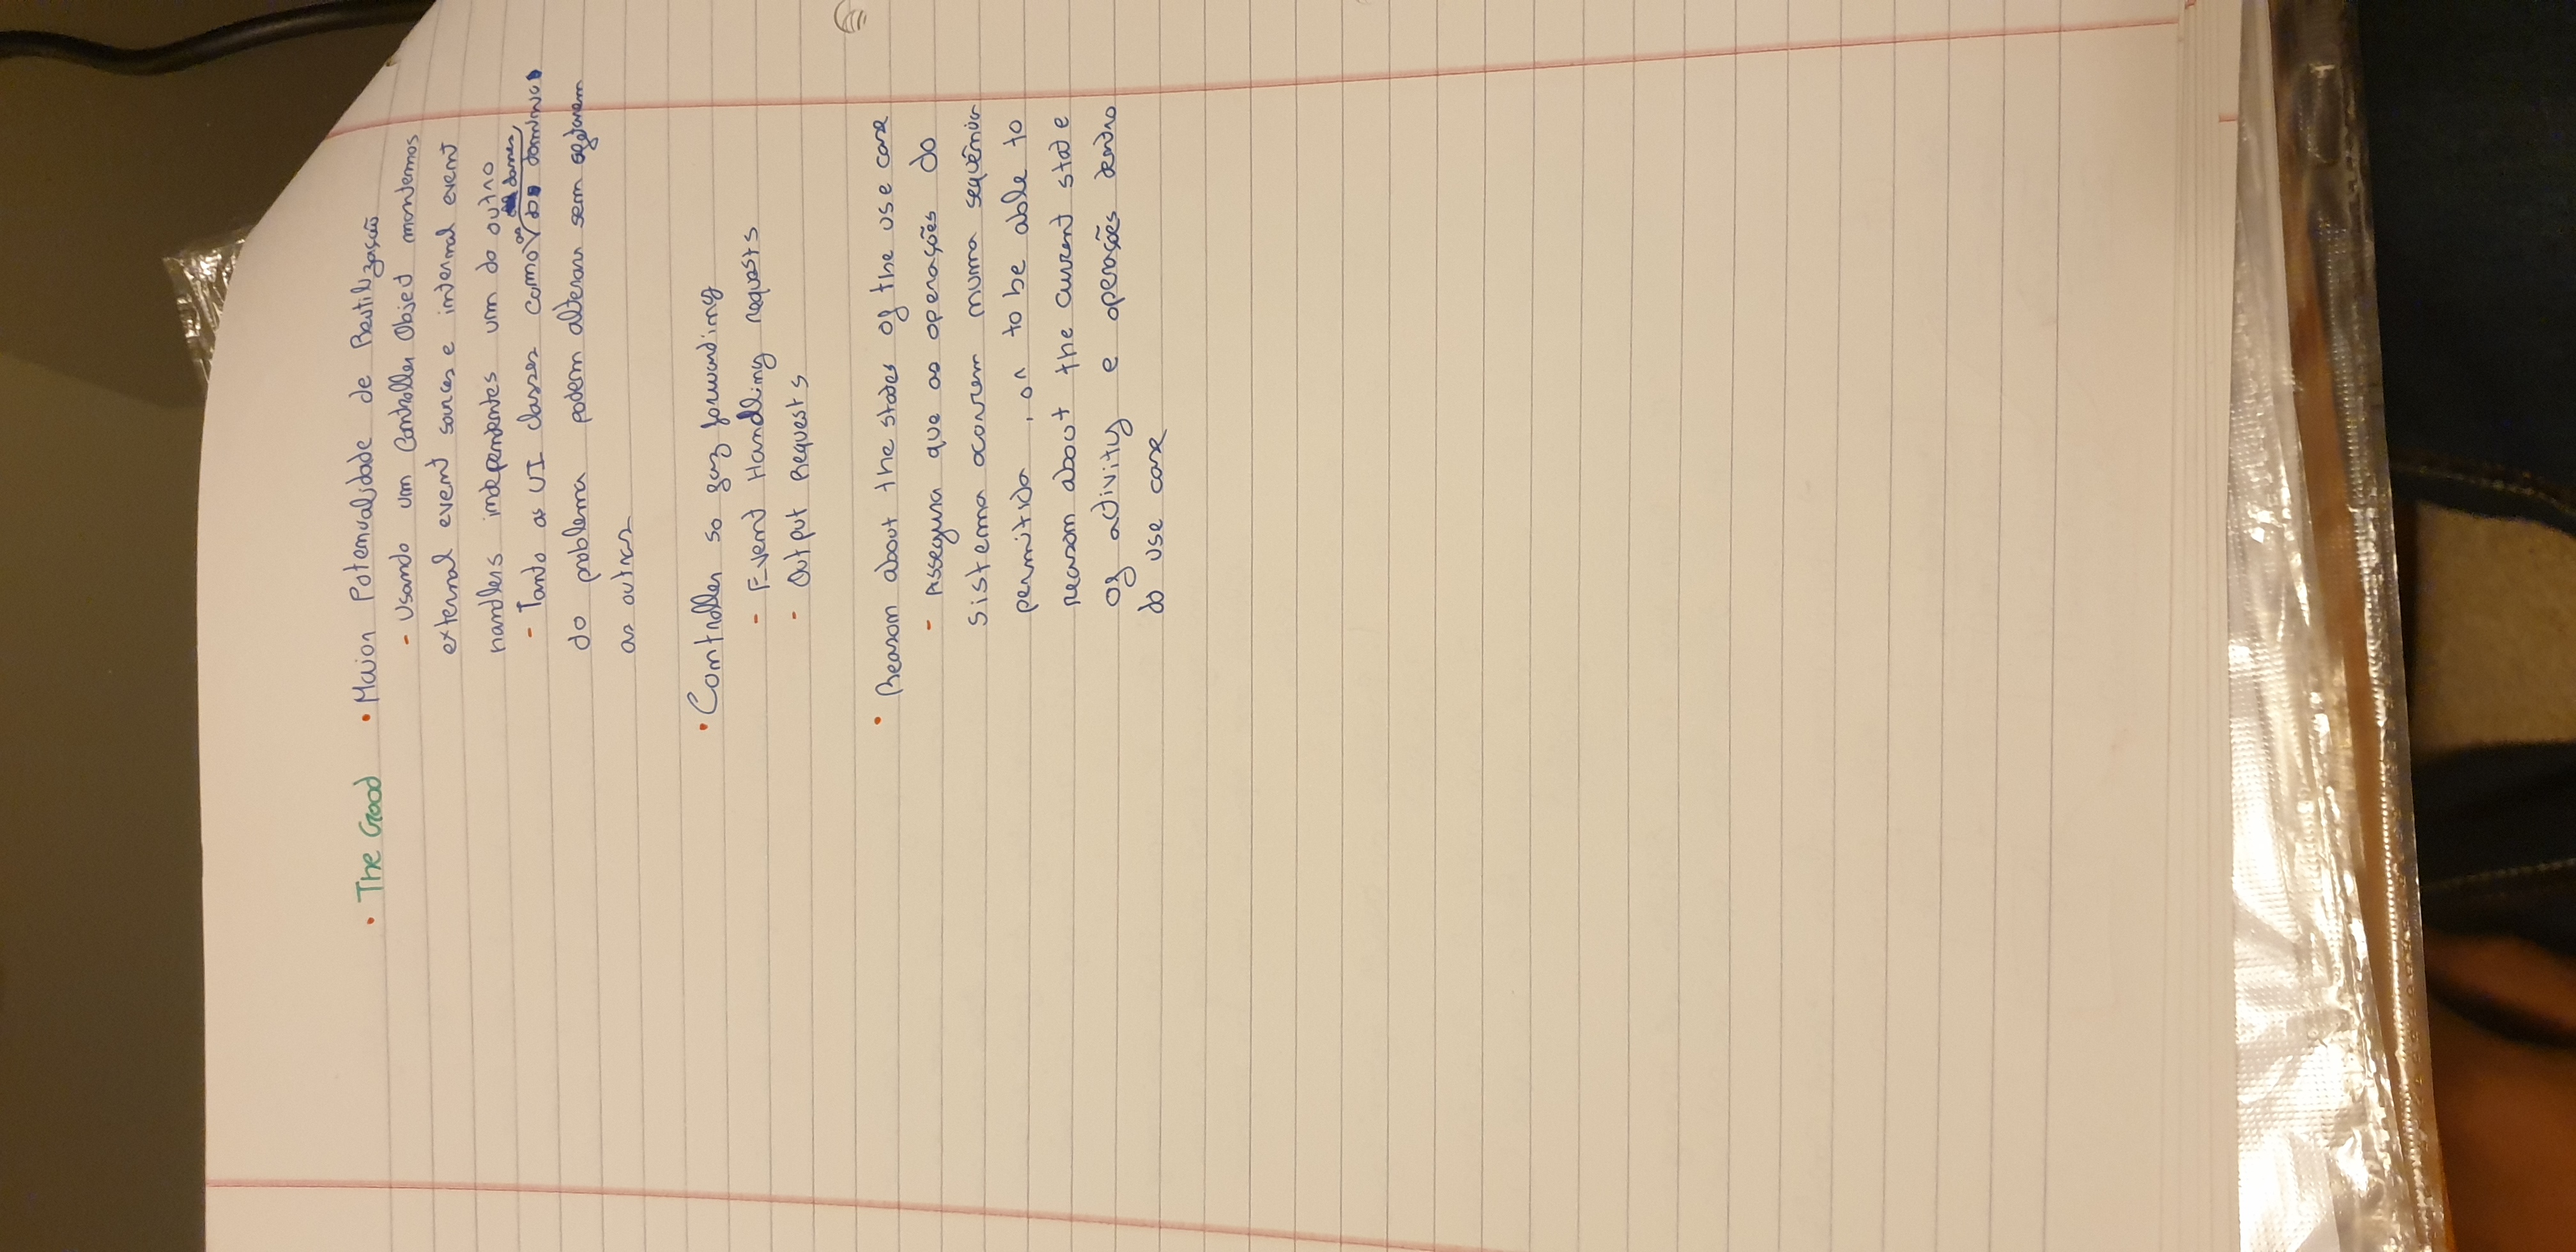 • The Good • Maior Potencialidade de Reutilização
- Usando um Controller Object mantemos
external event sources e internal event
handlers independentes um do outro
- Tanto as UI classes como as classes do domínio
do problema podem alterar sem afetarem
as outras
• Controller so faz forwarding
- Event Handling requests
- Output Requests
• Reason about the states of the use case
- Assegura que as operações do
sistema ocorrem numa sequência
permitida, or to be able to
reason about the current state
of activity e operações dentro
do use case